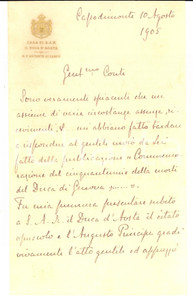 CASA DI S.A.R.
IL DUCA D'AOSTA
Capodimonte 10 Agosto
1905
Gent.mo Conte
Sono veramente spiacente che un
assieme di varie circostanze, assenze, ri
cevimenti, & mi abbiano fatto tardare
a rispondere al gentile
fatto della pubblicazione a Commemo
razione del cinquantenario della morte
del Duca di Genova
Fu mia premura presentare subito
a S.A.R. il Duca d'Aosta il citato
opuscolo e l'Augusto Principe gradì
vivamente l'atto gentile ed apprezzò